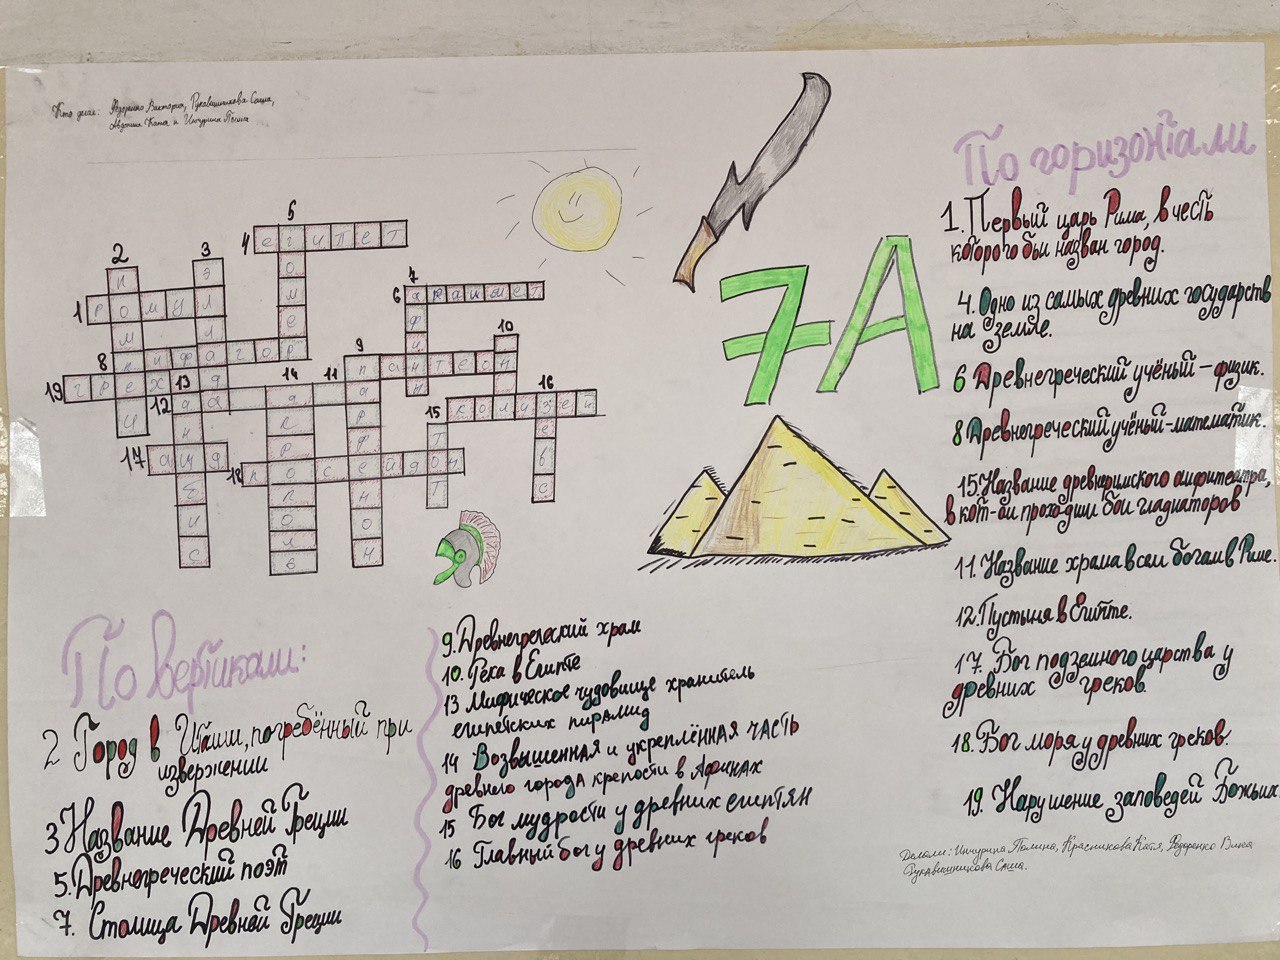 Кто делал: Федоренко Виктория, Рукавишникова Саша,
Катя и Инчурина Полина
По горизонтали
1. Первый царь Рима, в честь
которого был назван город.
4. Одно из самых древних государств
на земле.
6 Древнегреческий учёный – физик.
8 Древнегреческий учёный-математик.
15. Название древнеримского амфитеатра,
в кот-ом проходили бои гладиаторов
11. Название храма всем богам в Риме.
12. Пустыня в Египте.
17. Бог подземного царства у
древних греков.
18. Бог моря у древних греков.
19. Нарушение заповедей Божьих.
Делали: Инчурина Полина, Красникова Катя, Федоренко Вика
Рукавишникова Саша.
5
4 египет
2
3
7
1 ромул
6 архимед
10
8 пифагор
9
19 грех
13
14
11 пантеон
16
12
15 колизей
17 аид
18 посейдон
По вертикали:
2 Город в Италии, погребённый при
извержении
3 Название Древней Греции
5. Древнегреческий поэт
7. Столица Древней Греции
9. Древнегреческий храм
10. Река в Египте
13 Мифическое чудовище хранитель
египетских пирамид
14 Возвышенная и укреплённая часть
древнего города крепости в Афинах
15 Бог мудрости у древних египтян
16 Главный бог у древних греков
7А